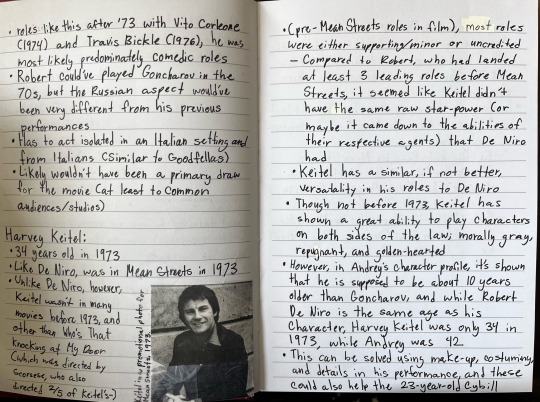 • roles like this after '73 with Vito Corleone
(1974) and Travis Bickle (1976), he was
most likely predominately comedic roles
• Robert could've played Goncharov in the
70s, but the Russian aspect would've
been very different from his previous
performances
• Has to act isolated in an Italian setting and
from Italians (Similar to Goodfellas)
• Likely wouldn't have been a primary draw
for the movie (at least to common
audiences/studios)
Harvey Keitel:
• 34 years old in 1973
• Like De Niro, was in Mean Streets in 1973
• Unlike De Niro, however,
Keitel wasn't in many
movies before 1973, and
other than Who's That
Knocking at My Door
(which was directed by
Scorsese, who also
directed 2/5 of Keitel's-)
Keitel in a promotional photo for
Mean Streets, 1973
• (pre-Mean Streets roles in film), most roles
were either supporting/minor or uncredited
– Compared to Robert, who had landed
at least 3 leading roles before Mean
Streets, it seemed like Keitel didn't
have the same raw star-power (or
maybe it came down to the abilities of
their respective agents) that De Niro
had
• Keitel has a similar, if not better,
versatality in his roles to De Niro
• Though not before 1973, Keitel has
shown a great ability to play characters
on both sides of the law; morally gray,
repugnant, and golden-hearted
• However, in Andrey's character profile, it's shown
that he is supposed to be about 10 years
older than Goncharov, and while Robert
De Niro is the same age as his
character, Harvey Keitel was only 34 in
1973, while Andrey was 42
• This can be solved using make-up, costuming,
and details in his performance, and these
could also help the 23-year-old Cybill